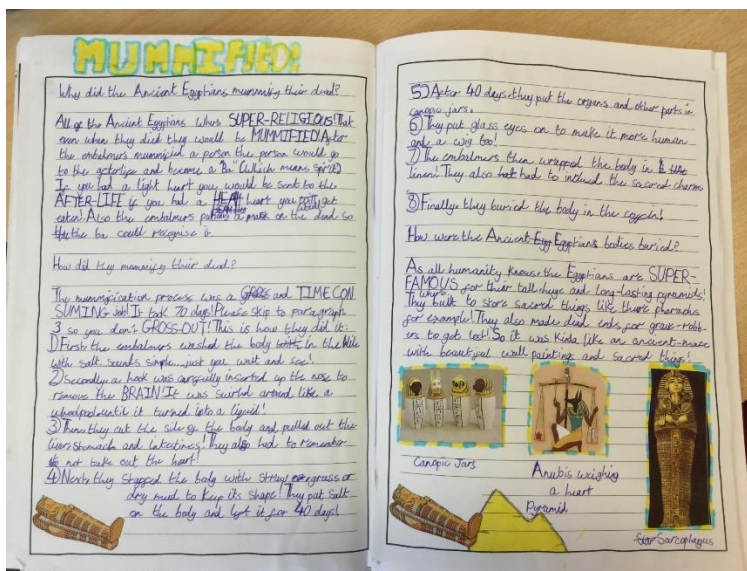 MUMMIFIED!
Why did the Ancient Egyptians mummify their dead?
All of the Ancient Egyptians where SUPER-RELIGIOUS! That
even when they died they woulb be MUMMIFIED! After
the embalmers mummified a person the person would go
to the afterlife and become a "Ba" (Which means Spirit)
If you had a light heart you would be sent to the
AFTER-LIFE if you had a heart you get
eaten! Also the embalmers put a mask on the dead so
the ba could recognise it.
How did they mummify their dead?
The mummification process was a GROSS and TIME CON
SUMING Job! It took 70 days! Please skip to paragraph
3 so you don't GROSS-OUT! This is how they did it:
1) First, the embalmers washed the body in the Nile
with salt. sounds simple... just you wait and see!
2) Secondly a hook was carefully inserted up the nose to
remove the BRAIN! It was swirled around like a
whoolpool until it turned into a liquid!
3) Then, they cut the side of the body and pulled out the
liver, stomach and intestines! They also had to remember
to not take out the heart!
4) Next, they stopped the body with straw, grass or
dry mud to keep its shape! They put salt
on the body and left it for 40 days!
5) After 40 days, they put the organs and other parts in
canopic jars.
6) They put glass eyes on to make it more human
and a wig too!
7) The embalmers then wrapped the body in
linen! They also had to include the sacred charms
8) Finally, they buried the body in the coffin!
How were the Ancient Egyptians bodies buried?
As all humanity knows, the Egyptians are SUPER-
FAMOUS for their tall, huge and long-lasting pyramids!
They were built to store sacred things like their pharaohs
for example! They also made dead ends for grave-robb-
ers to get lost! So it was kinda like an ancient-maze
with beautifal wall painting and sacred things!
Canopic Jars
Anubis weighing
a heart
Pyramid
Sarcophagus